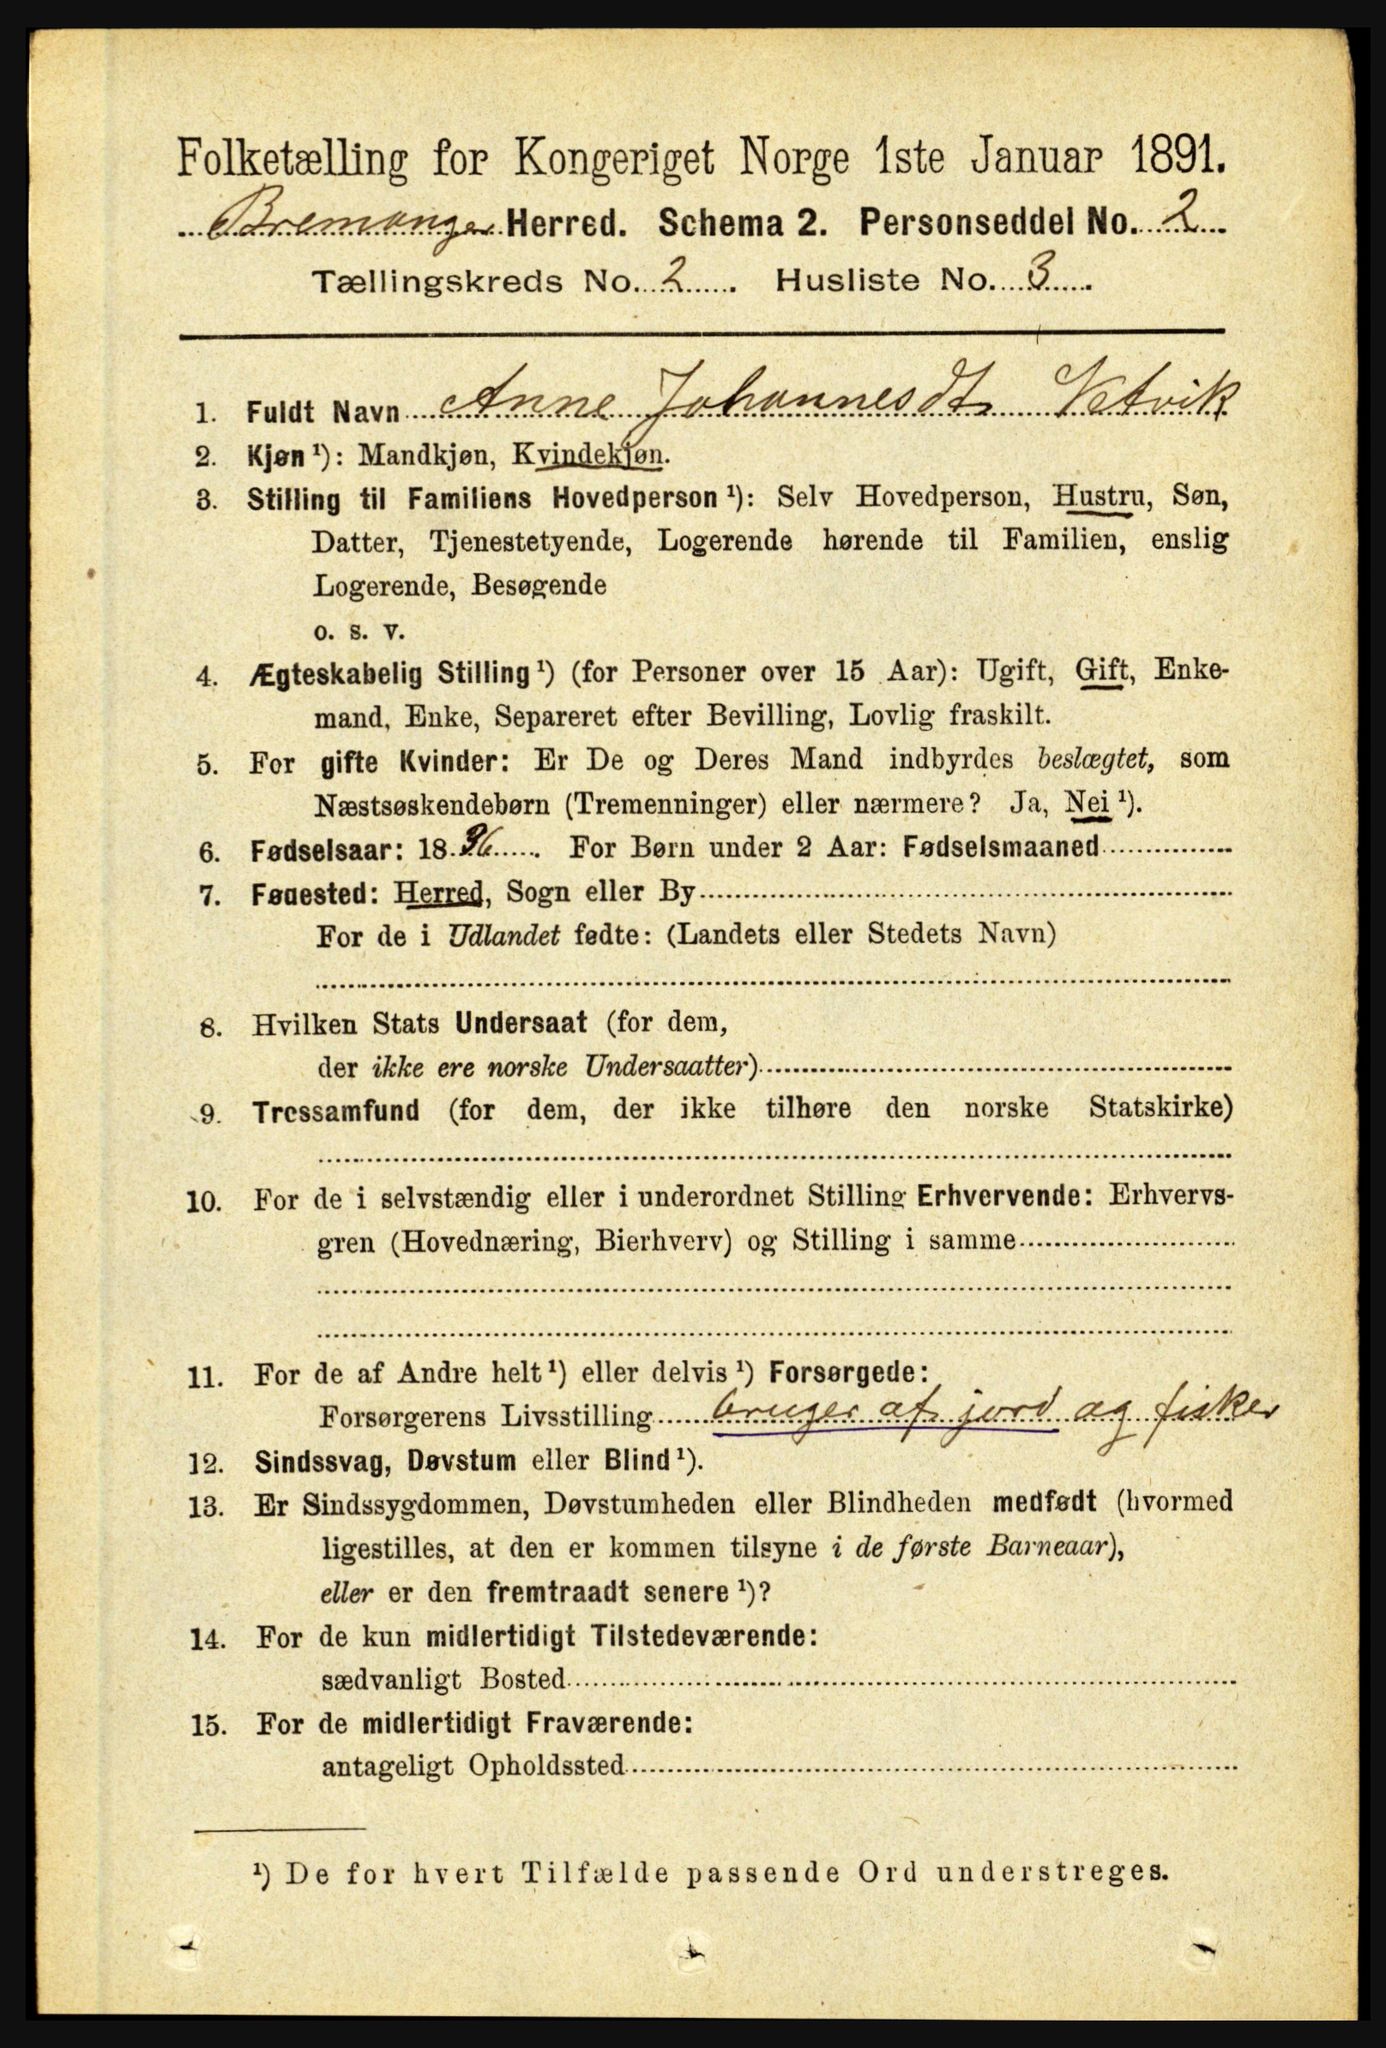 Folketælling for Kongeriget Norge 1ste Januar 1891.
Bremanger Herred. Schema 2. Personseddel No. 2
Tællingskreds No. 2. Husliste No. 3.
1. Fuldt Navn Anne Johannesdt Vetvik
2. Kjøn ¹): Mandkjøn, Kvindekjøn.
3. Stilling til Familiens Hovedperson ¹): Selv Hovedperson, Hustru, Søn,
Datter, Tjenestetyende, Logerende hørende til Familien, enslig
Logerende, Besøgende
o. s. v.
4. Ægteskabelig Stilling ¹) (for Personer over 15 Aar): Ugift, Gift, Enke-
mand, Enke, Separeret efter Bevilling, Lovlig fraskilt.
5. For gifte Kvinder: Er De og Deres Mand indbyrdes beslægtet, som
Næstsøskendebørn (Tremenninger) eller nærmere? Ja, Nei ¹).
6. Fødselsaar: 18 . For Børn under 2 Aar: Fødselsmaaned
7. Fødested: Herred, Sogn eller By
For de i Udlandet fødte: (Landets eller Stedets Navn)
8. Hvilken Stats Undersaat (for dem,
der ikke ere norske Undersaatter)
9. Trossamfund (for dem, der ikke tilhøre den norske Statskirke)
10. For de i selvstændig eller i underordnet Stilling Erhvervende: Erhvervs-
gren (Hovednæring, Bierhverv) og Stilling i samme
11. For de af Andre helt ¹) eller delvis ¹) Forsørgede:
Forsørgerens Livsstilling bruger af jord og fisker
12. Sindssvag, Døvstum eller Blind ¹).
13. Er Sindssygdommen, Døvstumheden eller Blindheden medfødt (hvormed
ligestilles, at den er kommen tilsyne i de første Barneaar),
eller er den fremtraadt senere ¹)?
14. For de kun midlertidigt Tilstedeværende:
sædvanligt Bosted
15. For de midlertidigt Fraværende:
antageligt Opholdssted
¹) De for hvert Tilfælde passende Ord understreges.